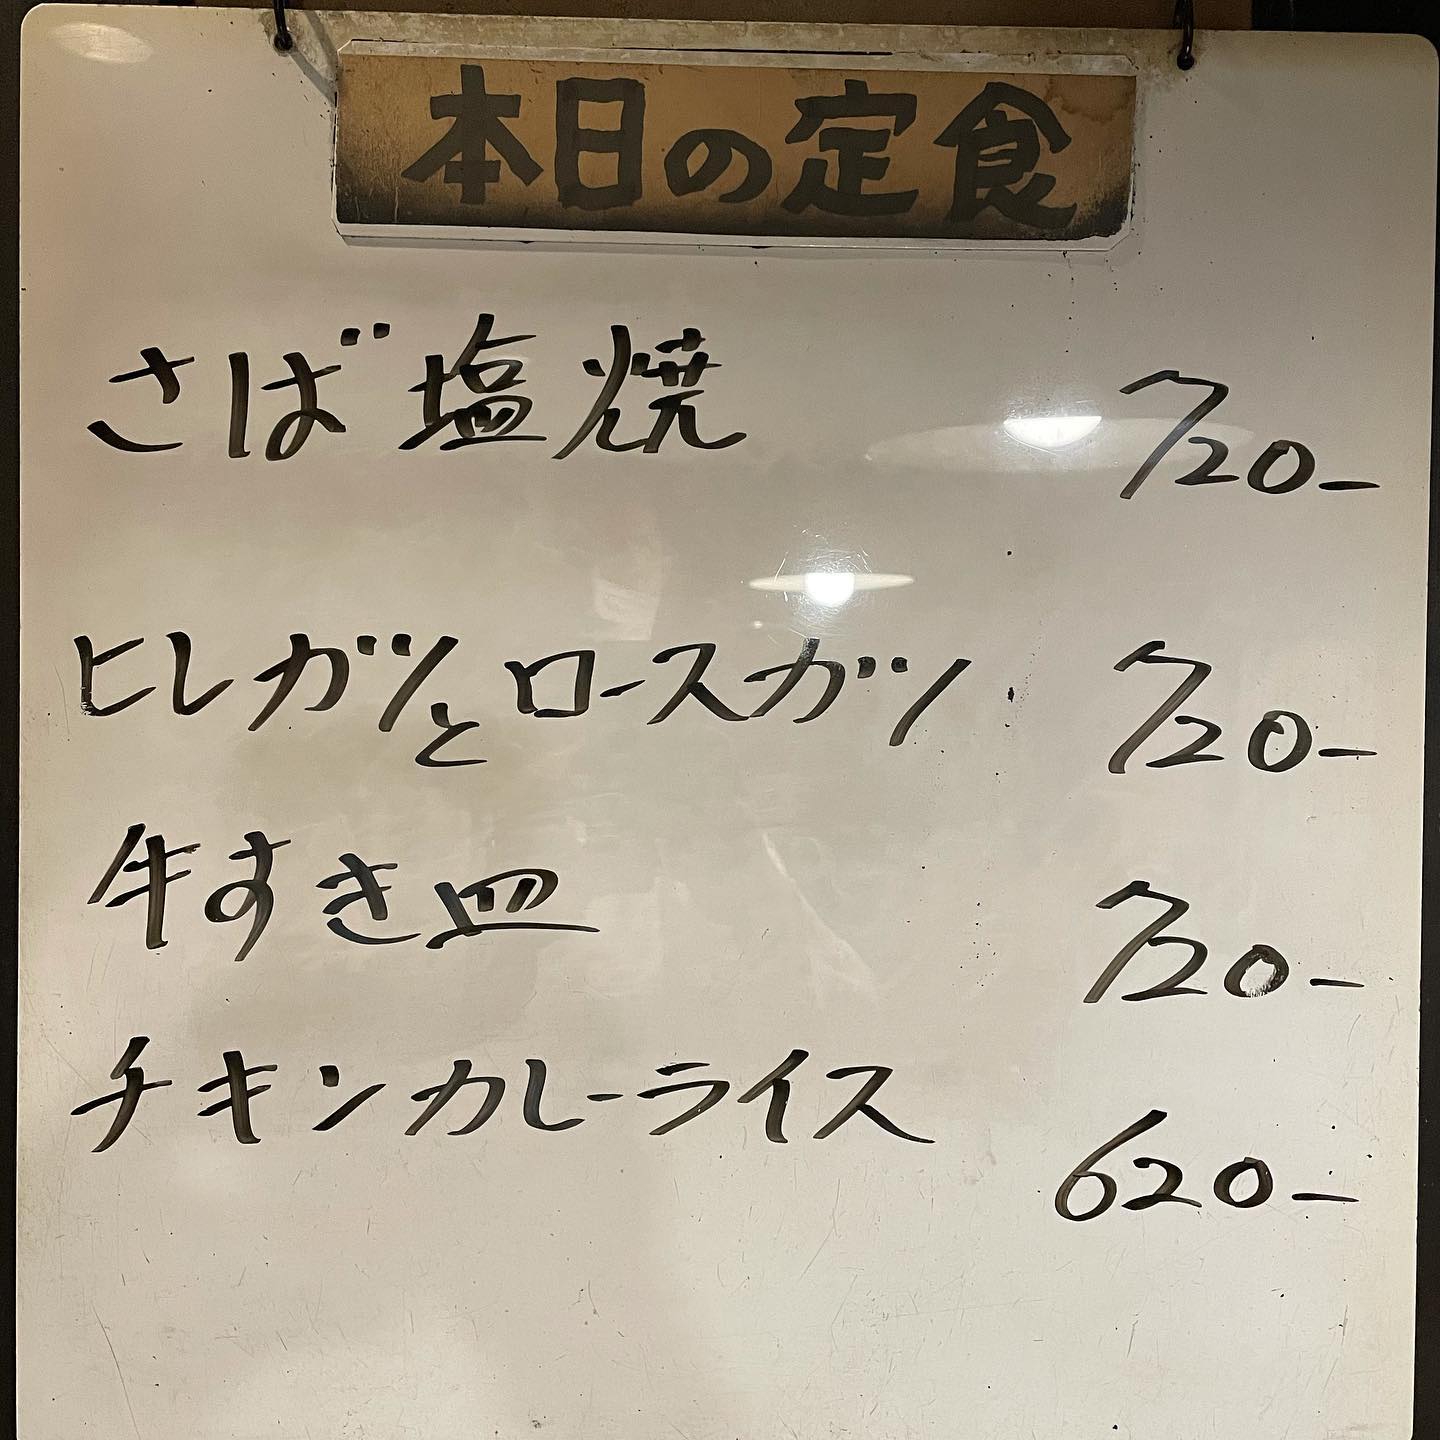 本日の定食
さば塩焼 720-
ヒレカツとロースカツ 720-
牛すき皿 720-
チキンカレーライス 620-